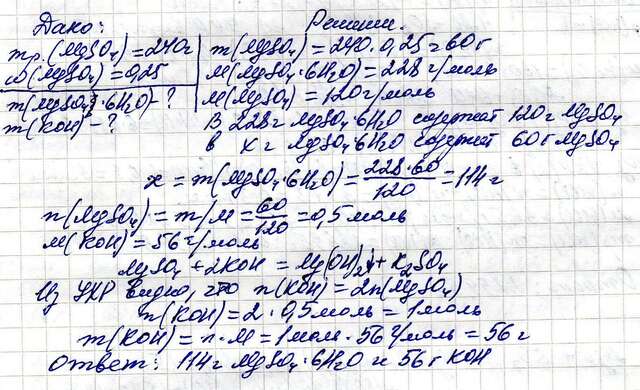 Дано:
mр.(MgSO₄) = 240г
ω(MgSO₄) = 0,25
m(MgSO₄·6H₂O) - ?
m(KOH) - ?
Решение.
m(MgSO₄) = 240·0,25 = 60г
M(MgSO₄·6H₂O) = 228 г/моль
M(MgSO₄) = 120 г/моль
В 228г MgSO₄·6H₂O содержат 120г MgSO₄
В x г MgSO₄·6H₂O содержат 60г MgSO₄
x = m(MgSO₄·6H₂O) = 228·60/120 = 114 г
n(MgSO₄) = m/M = 60/120 = 0,5 моль
M(KOH) = 56 г/моль
MgSO₄ + 2KOH = Mg(OH)₂↓ + K₂SO₄
Из УХР видно, что n(KOH) = 2n(MgSO₄)
n(KOH) = 2·0,5моль = 1моль
m(KOH) = n·M = 1моль·56 г/моль = 56г
Ответ: 114г MgSO₄·6H₂O и 56г KOH